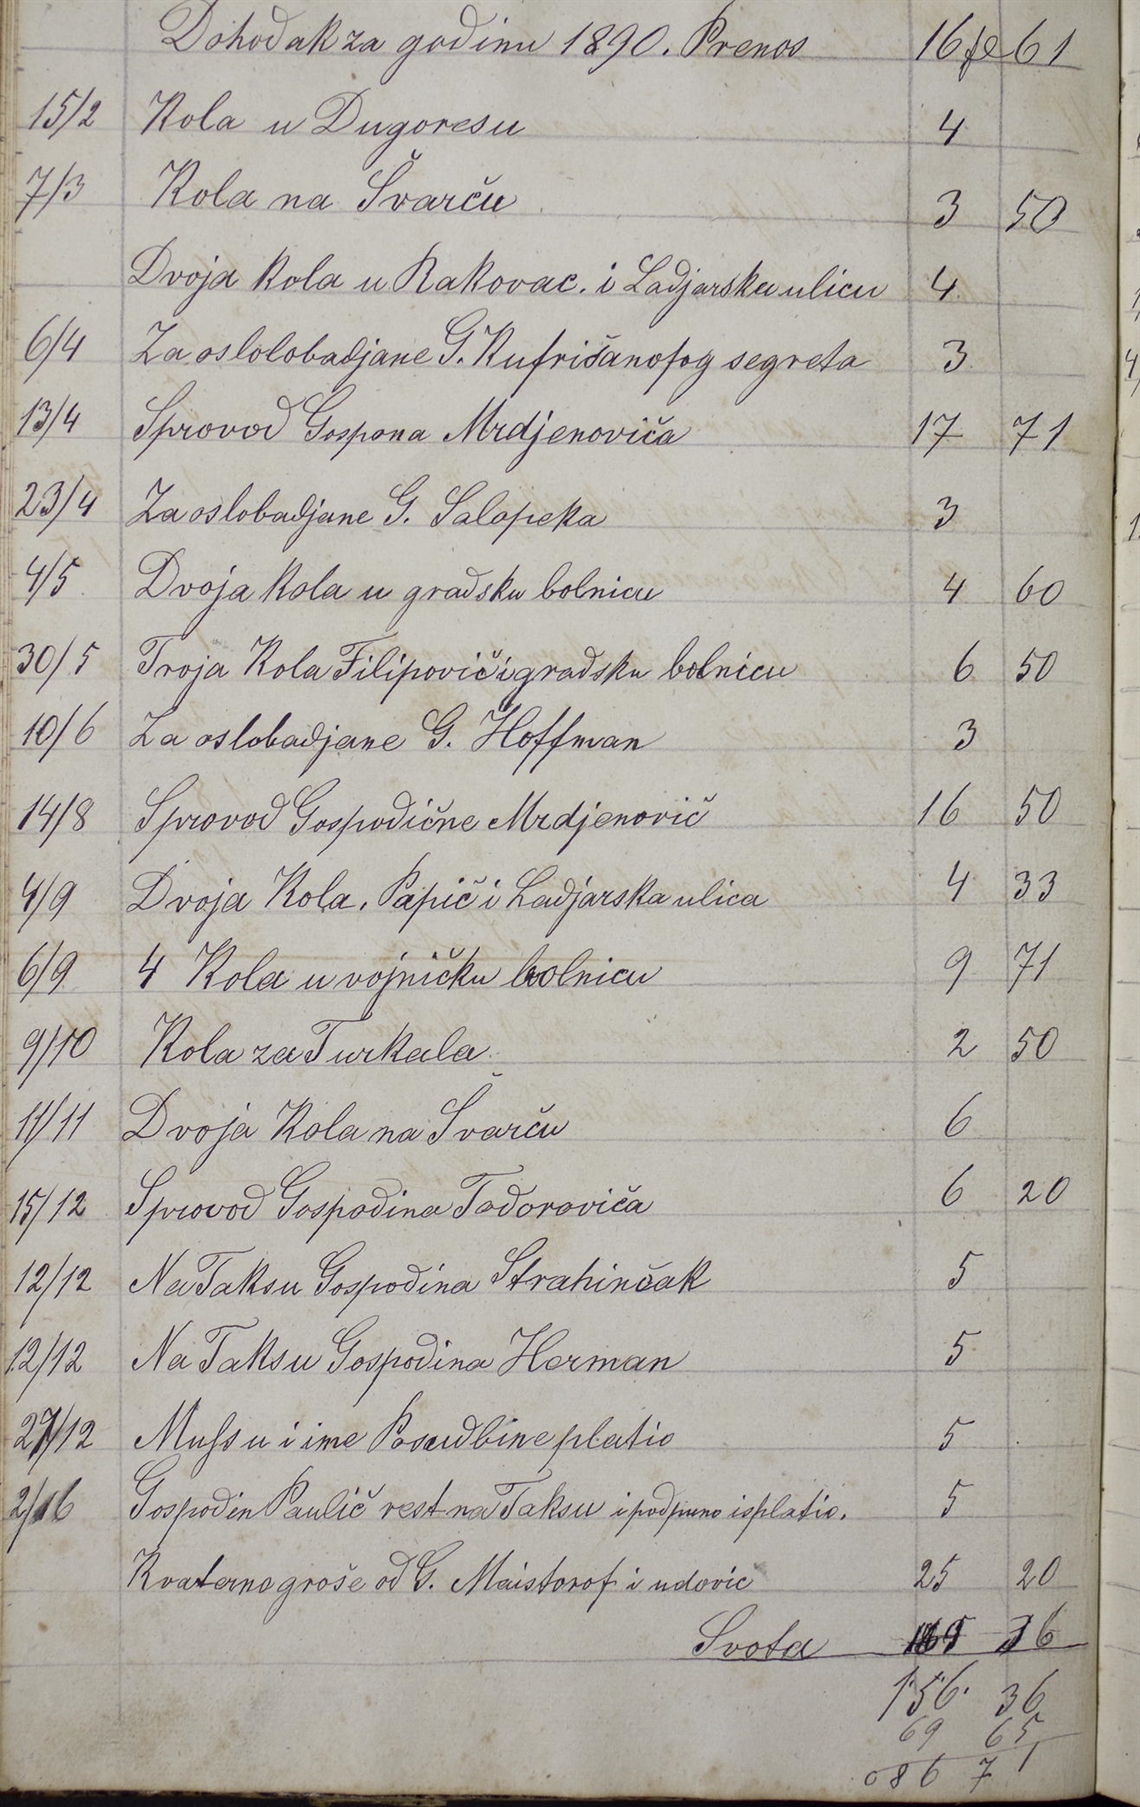 Dohodak za godinu 1890. Prenos 16 f 61
15/2 Kola u Dugoresu 4
7/3 Kola na Švarču 3 50
Dvoja Kola u Rakovac. i Ladjarsku ulicu 4
6/4 Za oslolobadjane G. Kufrišanofog segreta 3
13/4 Sprovod Gospona Mrdjenoviča 17 71
23/4 Za oslobadjane G. Salopeka 3
4/5 Dvoja Kola u gradsku bolnicu 4 60
30/5 Troja Kola Filipovič i gradsku bolnicu 6 50
10/6 Za oslobadjane G. Hoffman 3
14/8 Sprovod Gospodične Mrdjenovič 16 50
4/9 Dvoja Kola. Papič i Ladjarska ulica 4 33
6/9 4 Kola u vojničku bolnicu 9 71
9/10 Kola za Turkala 2 50
11/11 Dvoja Kola na Švarču 6
15/12 Sprovod Gospodina Todoroviča 6 20
12/12 Na Taksu Gospodina Strahinčak 5
12/12 Na Taksu Gospodina Herman 5
/12 u i ime Posudbine platio 5
Gospodin Paulič rest na Taksu i podpuno isplatio. 5
Kvaterne groše od G. Maistorof i udovic 25 20
Svota 36
156. 36
69 65
086 71